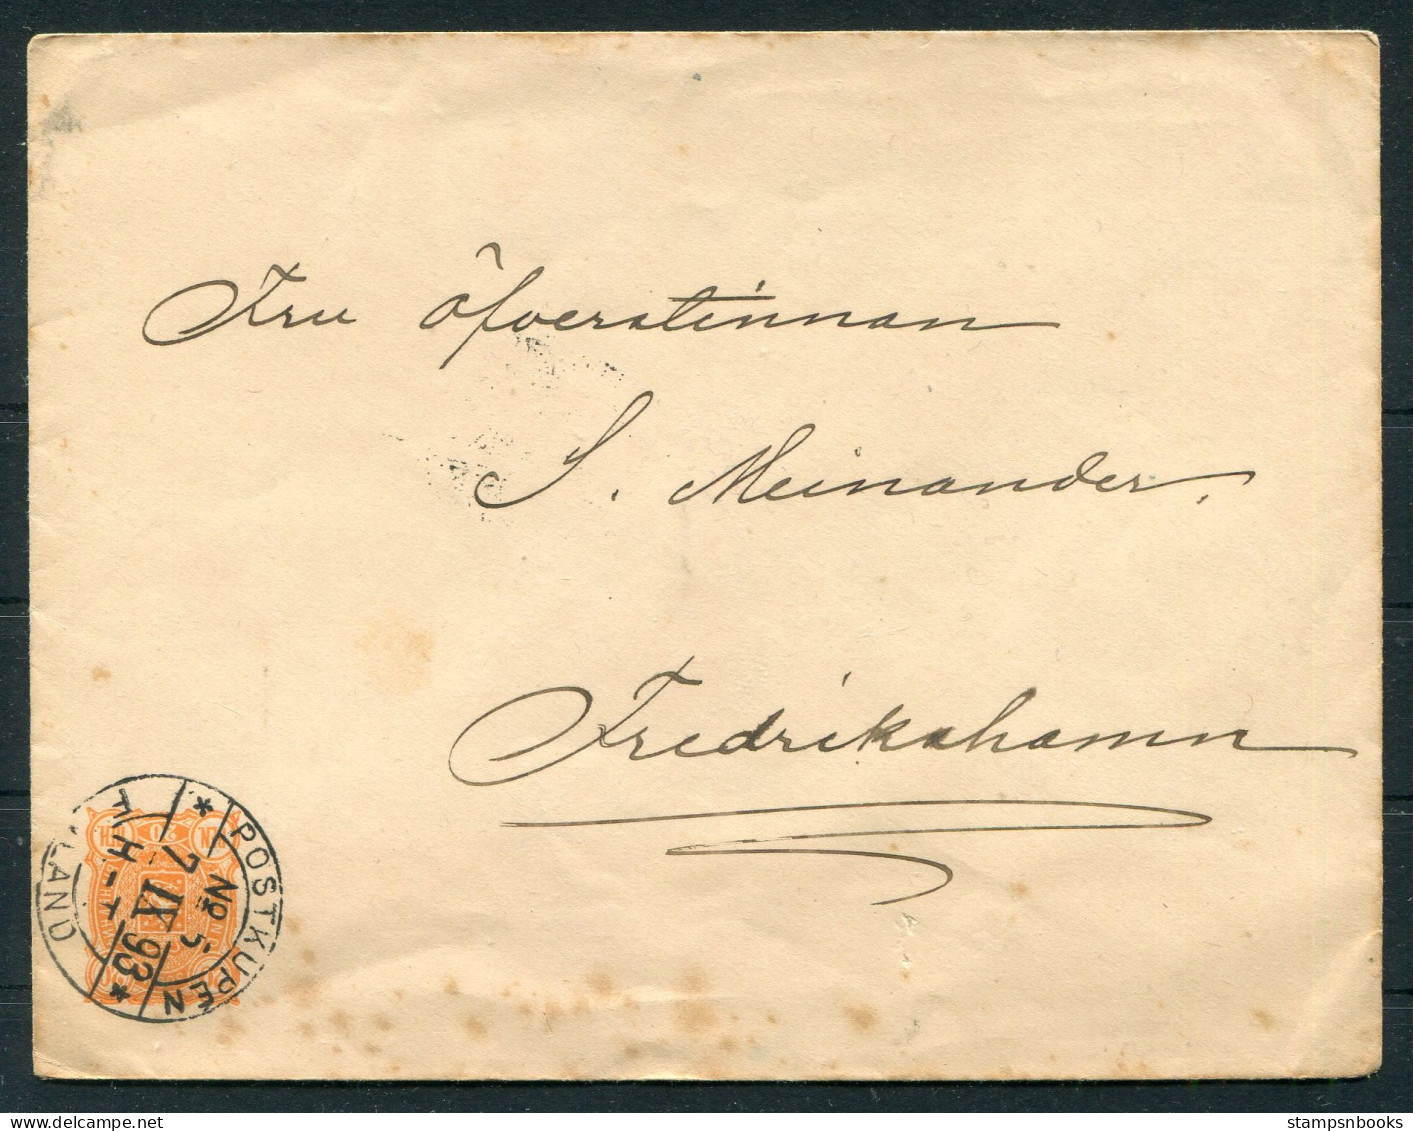 Fru öfverstinnan
S. Meinander.
Fredrikshamn
POSTKUPÉN
No 5
7 IX 93
H-T
LAND
20
stampsnbooks